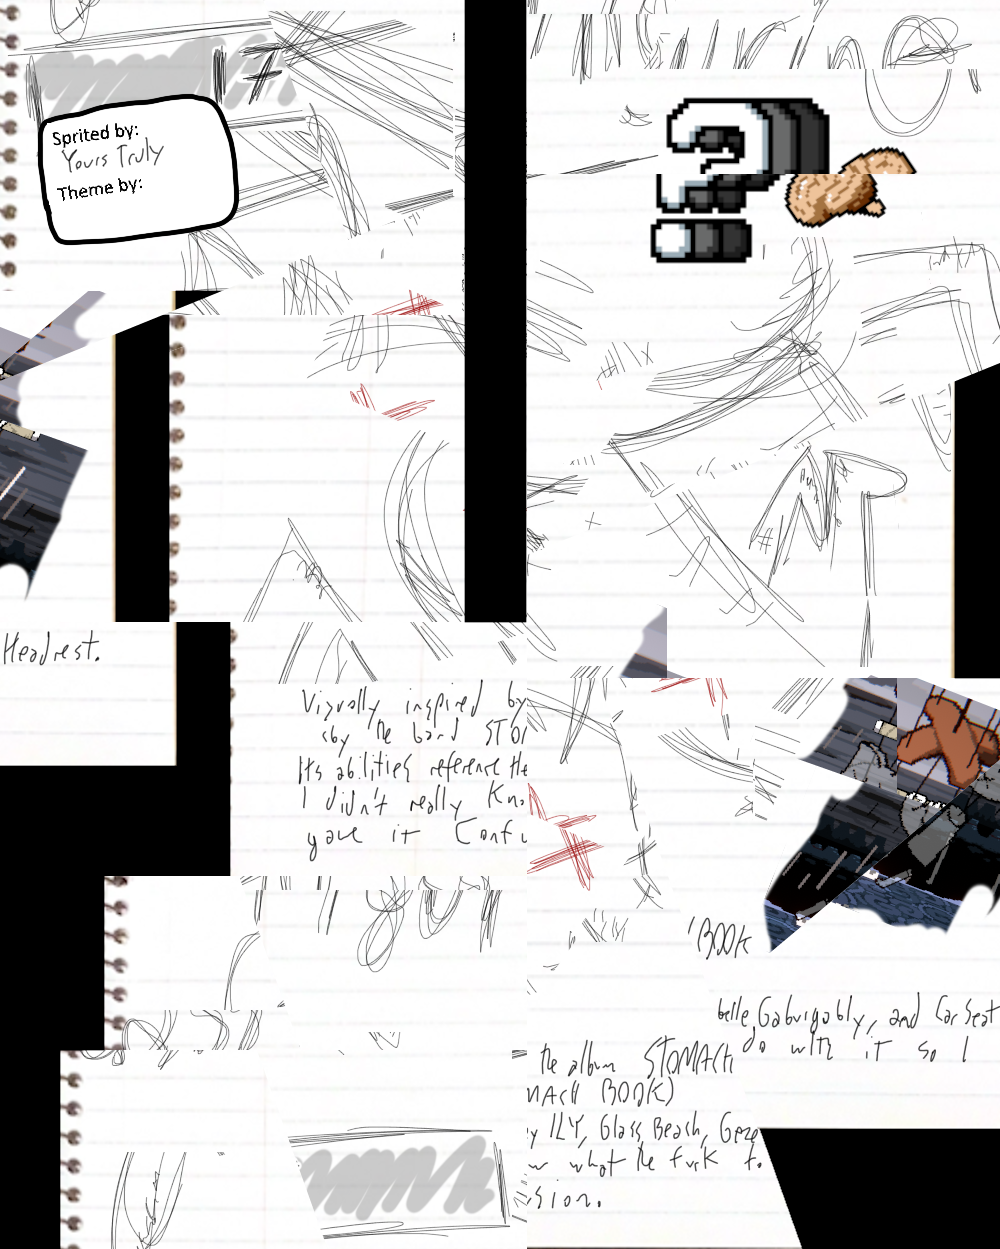 Sprited by:
Yours Truly
Theme by:
?
Headrest.
Visually inspired by
by the band STO
Its abilities reference the
I didn't really kno
gave it Confu
'BOOK
belle, Gaburgably, and Car Seat
do with it so I
the album STOMACH
MACH BOOK)
y ILY, Glass Beach, Geze
w what the fuck to
sion.